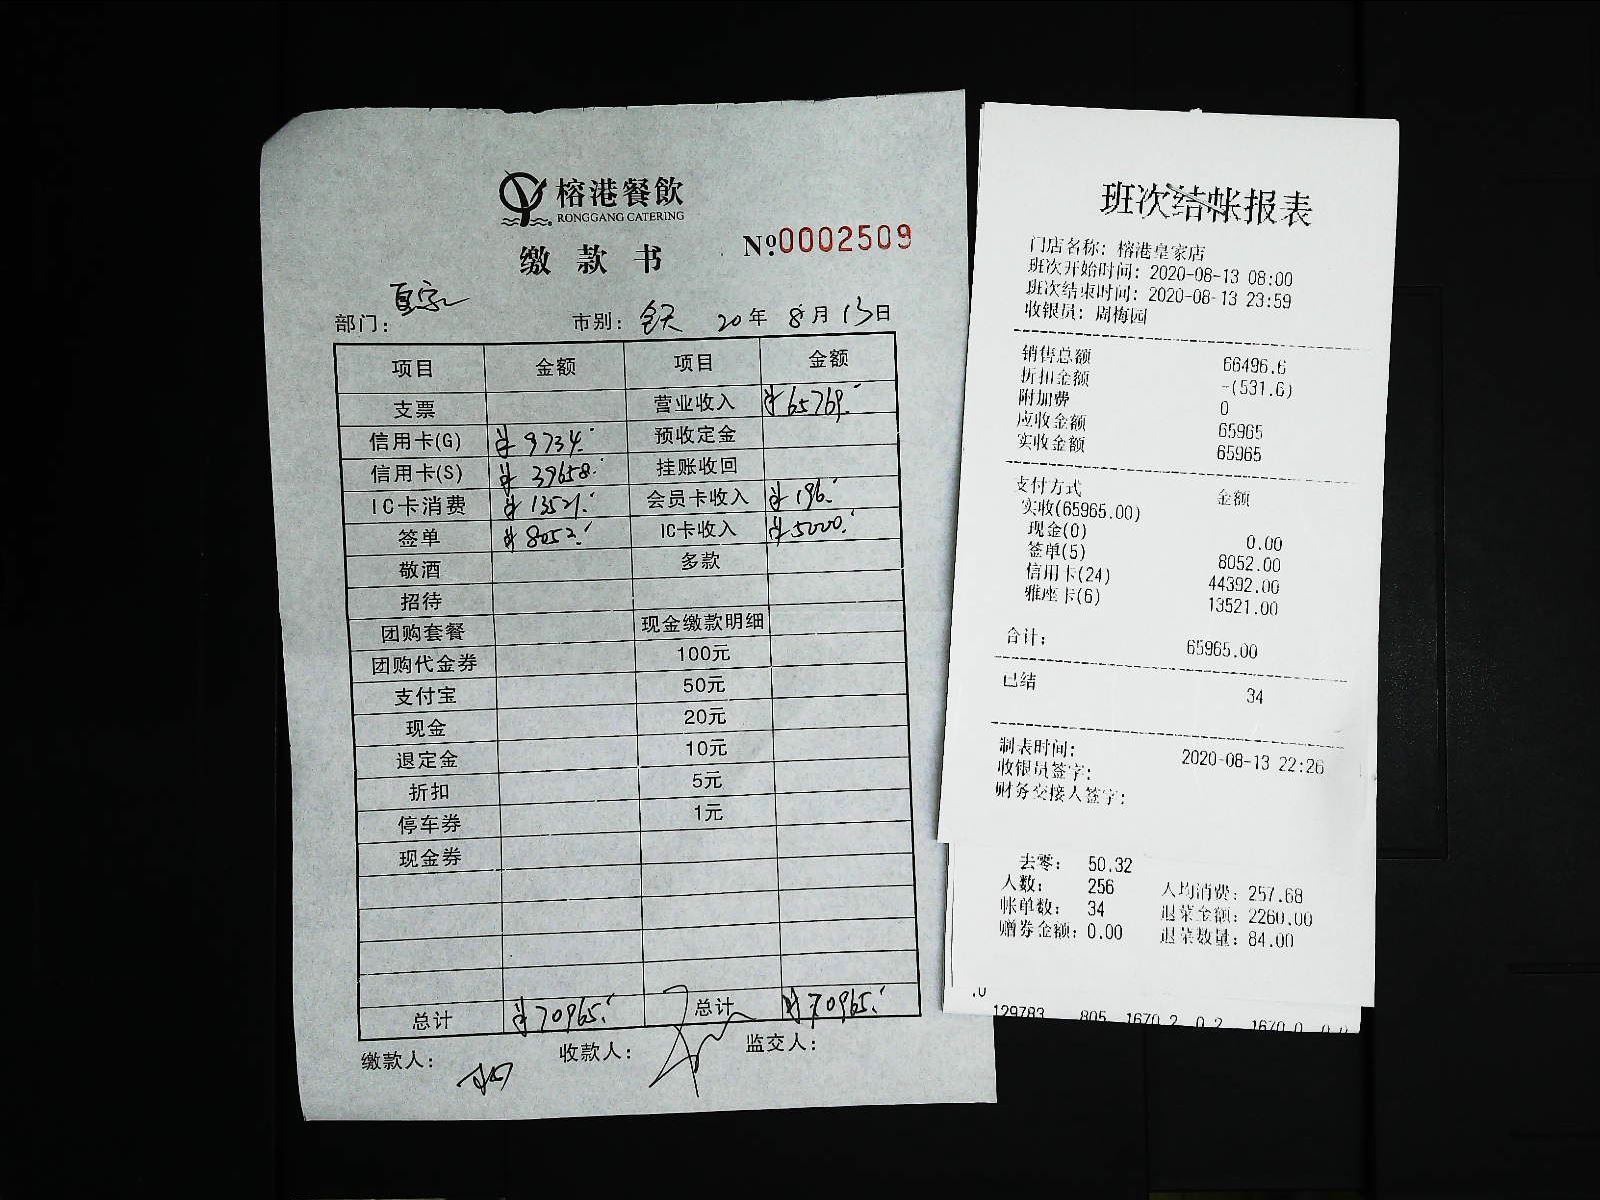 榕港餐飲
RONGGANG CATERING
缴款书
№0002509
部门: 皇家
市别: 全天 20年 8月 13日
项目 金额 项目 金额
支票 营业收入 ¥65769.-
信用卡(G) ¥9734.- 预收定金
信用卡(S) ¥39658.- 挂账收回
IC卡消费 ¥13521.- 会员卡收入 ¥196.-
签单 ¥8052.- IC卡收入 ¥5000.-
敬酒 多款
招待
团购套餐 现金缴款明细
团购代金券 100元
支付宝 50元
现金 20元
退定金 10元
折扣 5元
停车券 1元
现金券
总计 ¥70965.- 总计 ¥70965.-
缴款人: 收款人: 监交人:
班次结帐报表
门店名称: 榕港皇家店
班次开始时间: 2020-08-13 08:00
班次结束时间: 2020-08-13 23:59
收银员: 周梅园
销售总额 66496.6
折扣金额 -(531.6)
附加费 0
应收金额 65965
实收金额 65965
支付方式 金额
实收(65965.00)
现金(0) 0.00
签单(5) 8052.00
信用卡(24) 44392.00
雅座卡(6) 13521.00
合计: 65965.00
已结 34
制表时间: 2020-08-13 22:26
收银员签字:
财务交接人签字:
去零: 50.32
人数: 256 人均消费: 257.68
帐单数: 34 退菜金额: 2260.00
赠券金额: 0.00 退菜数量: 84.00
.0
129783 805 1670.2 0.2 1670.0 0.0